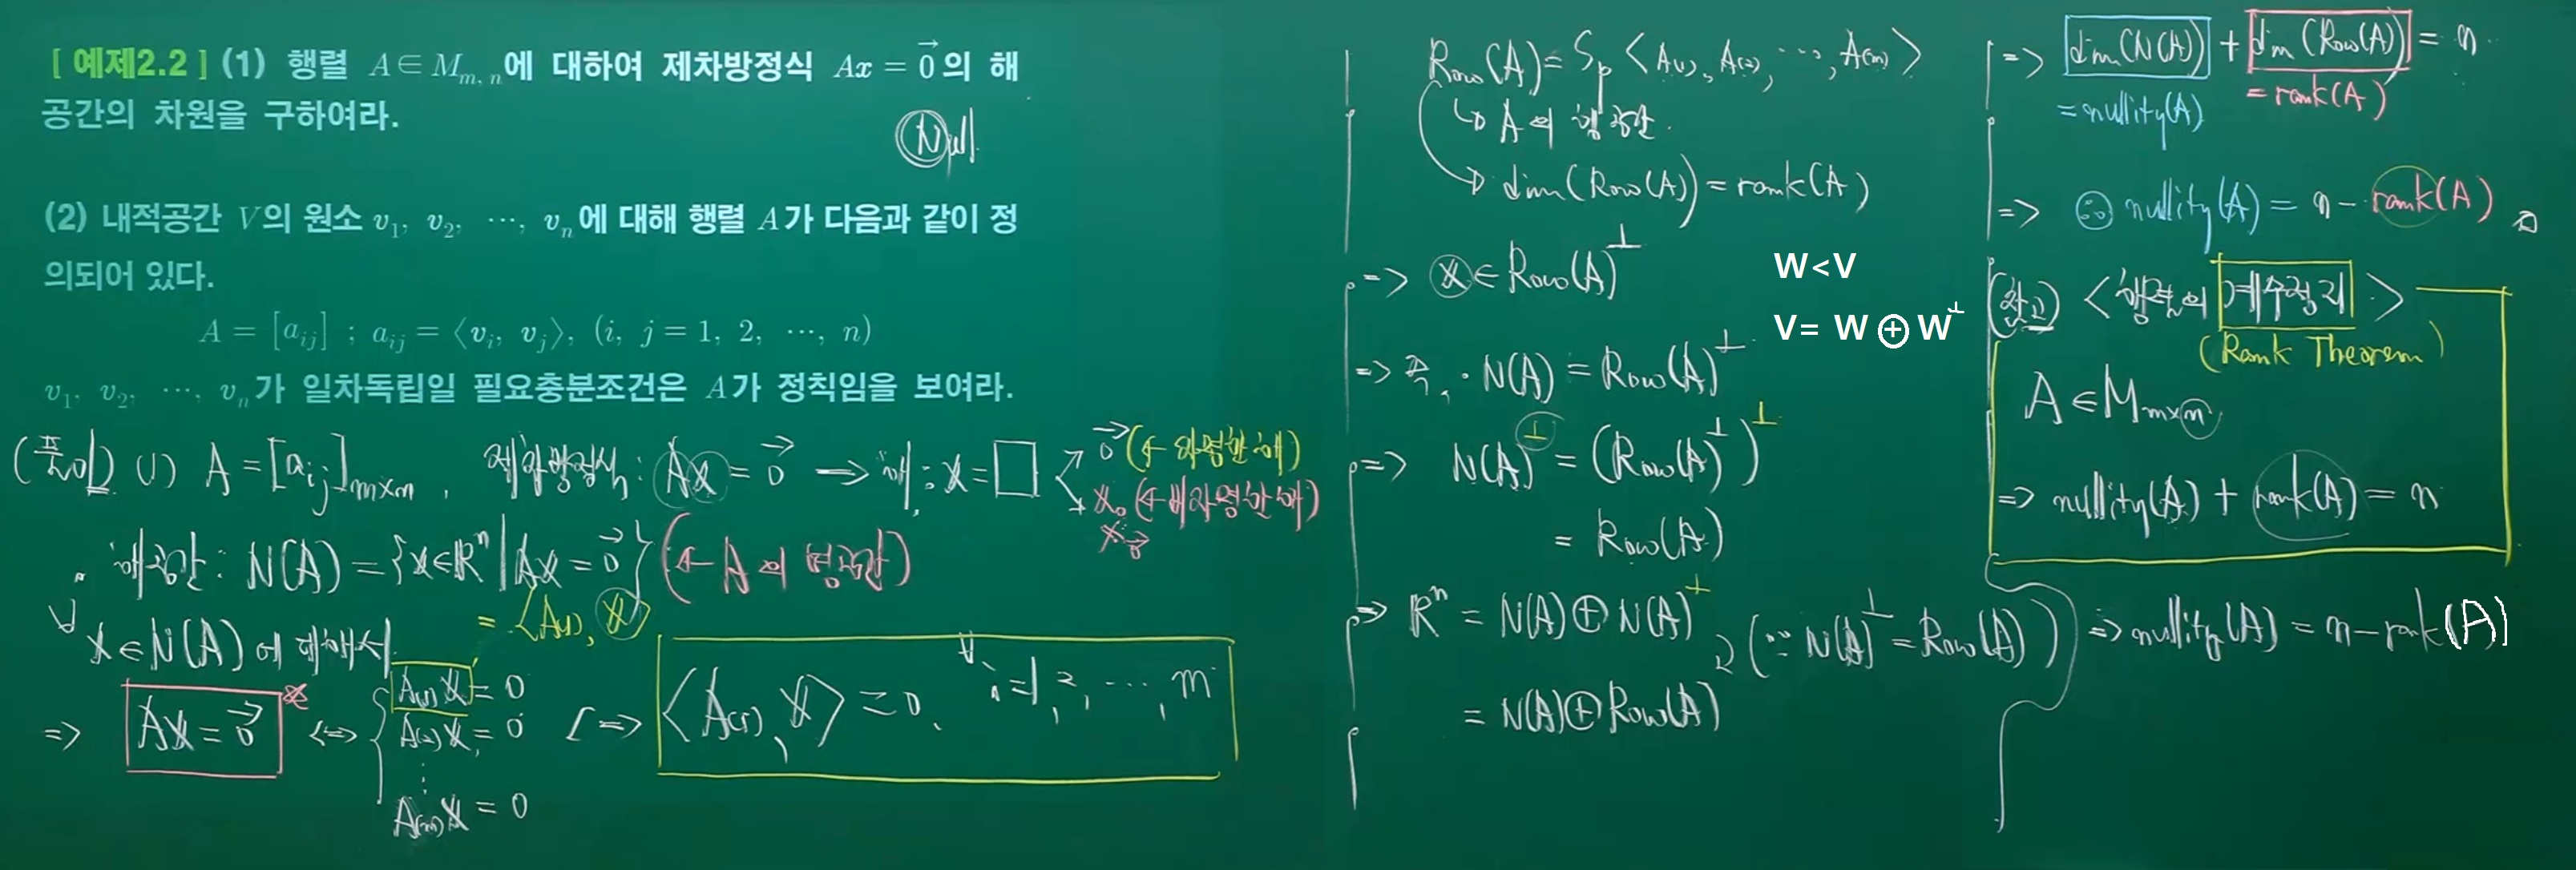 [ 예제2.2 ] (1) 행렬 A∈M_{m, n}에 대하여 제차방정식 Ax = 0⃗의 해
공간의 차원을 구하여라.
Null
(2) 내적공간 V의 원소 v₁, v₂, ⋯, vₙ에 대해 행렬 A가 다음과 같이 정
의되어 있다.
A = [a_{ij}] ; a_{ij} = ⟨v_i, v_j⟩, (i, j = 1, 2, ⋯, n)
v₁, v₂, ⋯, vₙ가 일차독립일 필요충분조건은 A가 정칙임을 보여라.
(풀이) (1) A = [a_{ij}]_{m×n}, 제차방정식: Ax = 0⃗ ⟹ 해: x = □
0⃗ (← 자명한 해)
x₀ (← 비자명한 해)
해공간: N(A) = {x∈ℝⁿ | Ax = 0⃗} (← A의 영공간)
∀x∈N(A)에 대해서
= ⟨A₍₁₎, x⟩
=> Ax = 0⃗ <=> A₍₁₎x = 0
A₍₂₎x = 0
⋮
A₍ₘ₎x = 0
<=> ⟨A₍ᵢ₎, x⟩ = 0, ∀i = 1, 2, ⋯, m
Row(A) = Sp⟨A₍₁₎, A₍₂₎, ⋯, A₍ₘ₎⟩
↳ A의 행공간.
→ dim(Row(A)) = rank(A)
=> x ∈ Row(A)^⊥
W<V
V= W⊕W^⊥
=> 즉, N(A) = Row(A)^⊥
=> N(A)^⊥ = (Row(A)^⊥)^⊥
= Row(A)
=> ℝⁿ = N(A)⊕N(A)^⊥
(∵ N(A)^⊥ = Row(A))
= N(A)⊕Row(A)
=> dim(N(A)) + dim(Row(A)) = n
= nullity(A)
= rank(A)
=> ∴ nullity(A) = n - rank(A)
(참고) <행렬의 계수정리>
(Rank Theorem)
A ∈ M_{m×n}
=> nullity(A) + rank(A) = n
=> nullity(A) = n - rank(A)